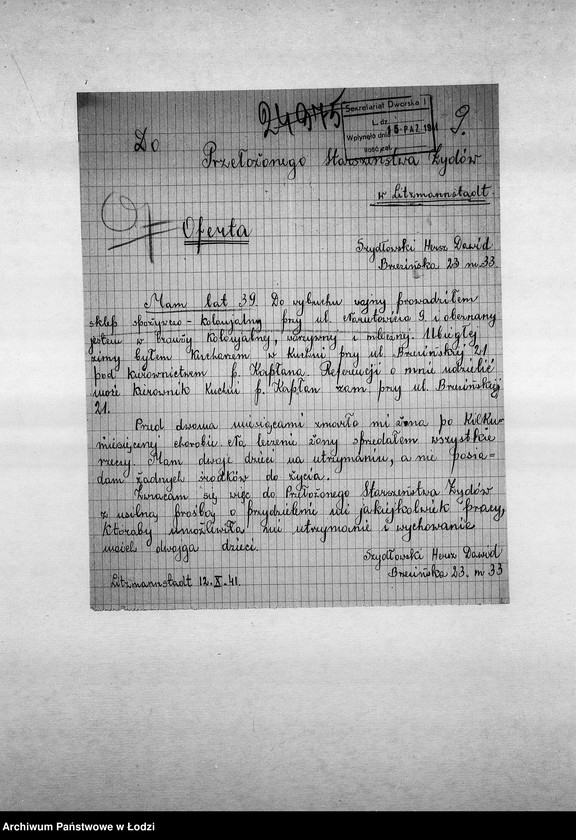 24975
Sekretariat Dworska 1
L. dz.
Wpłynęło dnia 15 PAŹ. 1941
Ilość zał.
9.
Do
Przełożonego Starszeństwa Żydów
w Litzmannstadt.
Of
Oferta
Szydłowski Hersz Dawid
Brzezińska 23 m 33.
Mam lat 39. Do wybuchu wojny prowadziłem
sklep spożywczo-kolonjalny przy ul. Narutowicza 9 i obeznany
jestem w branży kolonjalnej, warzywnej i mlecznej. Ubiegłej
zimy byłem Kucharzem w Kuchni przy ul. Brzezińskiej 21
pod kierownictwem p. Kapłana. Referencji o mnie udzielić
może kierownik Kuchni p. Kapłan zam. przy ul. Brzezińskiej
21.
Przed dwoma miesiącami zmarła mi żona po kilku-
miesięcznej chorobie. Na leczenie żony sprzedałem wszystkie
rzeczy. Mam dwoje dzieci na utrzymaniu, a nie posia-
dam żadnych środków do życia.
Zwracam się więc do Przełożonego Starszeństwa Żydów
z usilną prośbą o przydzielenie mi jakiejkolwiek pracy,
któraby umożliwiła mi utrzymanie i wychowanie
moich dwojga dzieci.
Szydłowski Hersz Dawid
Brzezińska 23. m 33
Litzmannstadt 12.X.41.
Archiwum Państwowe w Łodzi